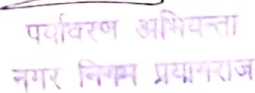 पर्यावरण अभियन्ता
नगर निगम प्रयागराज